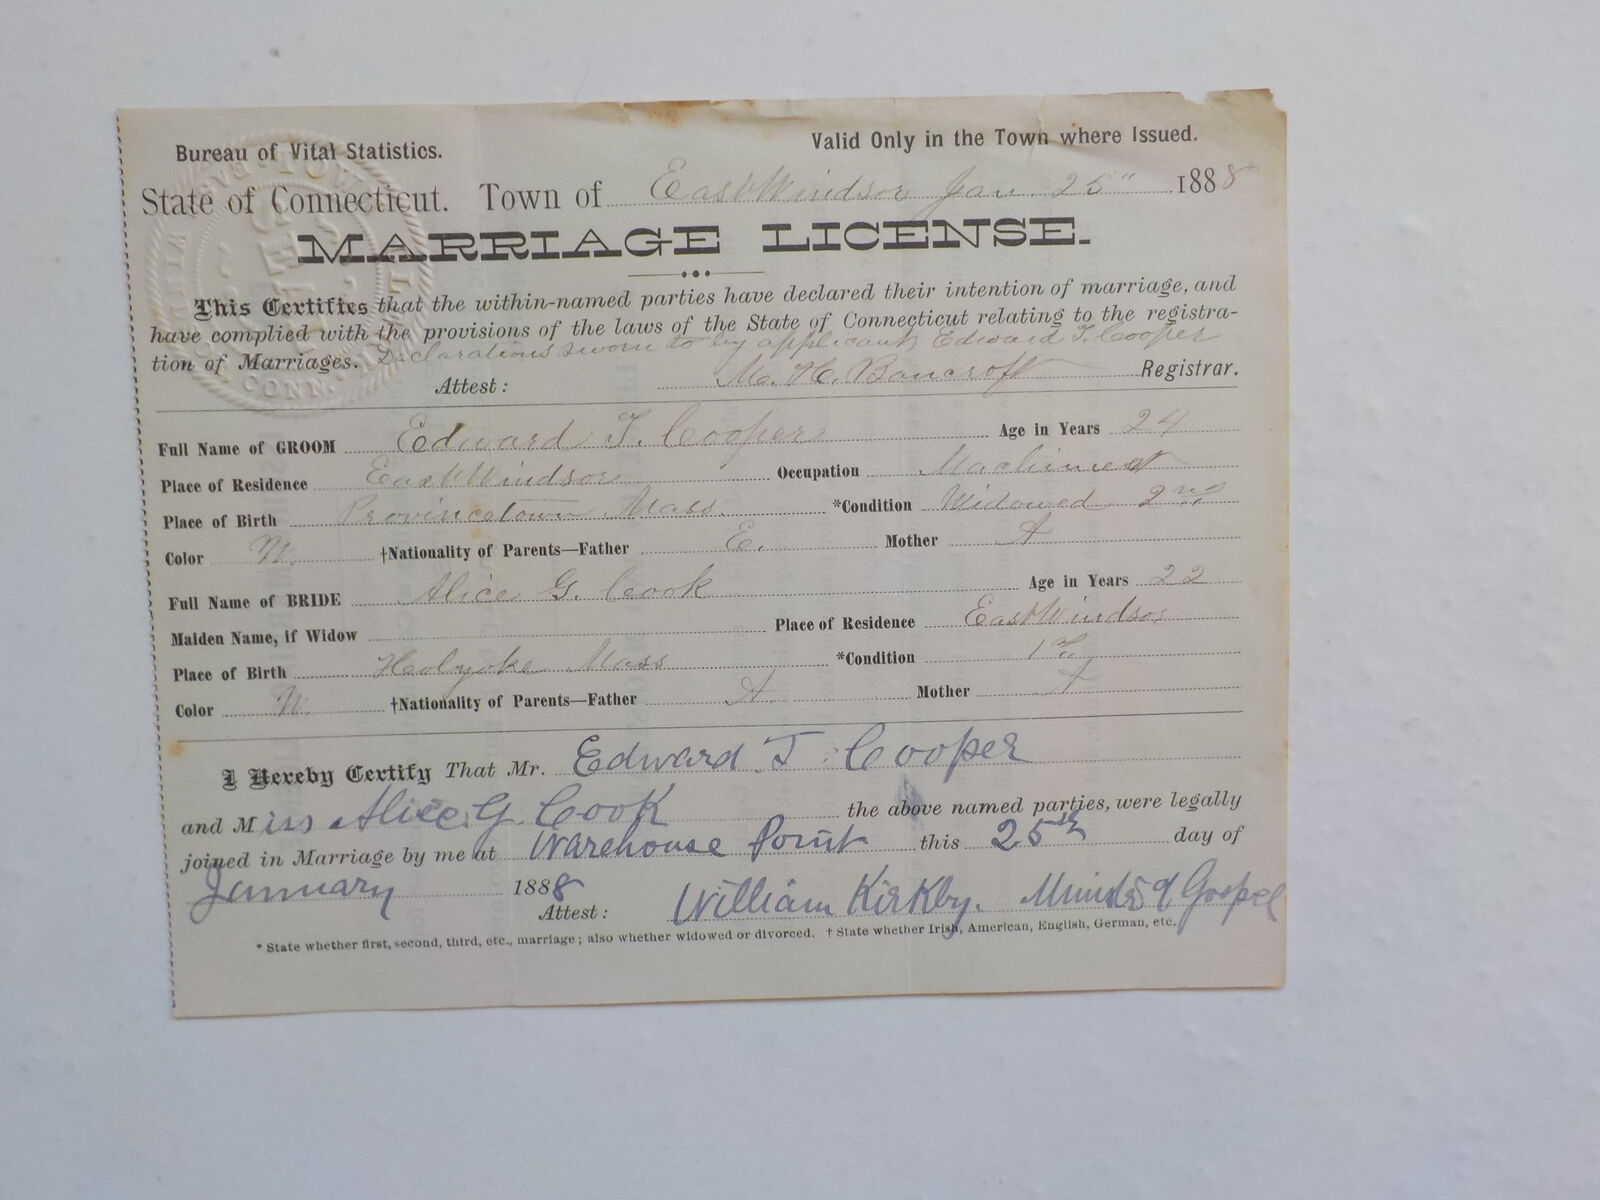 Bureau of Vital Statistics. Valid Only in the Town where Issued.
State of Connecticut. Town of East Windsor Jan. 25" 1888
MARRIAGE LICENSE.
This Certifies that the within-named parties have declared their intention of marriage, and
have complied with the provisions of the laws of the State of Connecticut relating to the registra-
tion of Marriages. Declarations sworn to by applicant Edward T. Cooper
Attest: M. H. Bancroft Registrar.
Full Name of GROOM Edward T. Cooper Age in Years 24
Place of Residence East Windsor Occupation Machinest
Place of Birth Provincetown Mass. *Condition Widowed 2nd
Color W. †Nationality of Parents—Father E. Mother A
Full Name of BRIDE Alice G. Cook Age in Years 22
Maiden Name, if Widow Place of Residence East Windsor
Place of Birth Holyoke Mass *Condition 1st
Color W. †Nationality of Parents—Father A. Mother A
I Hereby Certify That Mr. Edward T. Cooper
and Miss Alice G. Cook the above named parties, were legally
joined in Marriage by me at Warehouse Point this 25th day of
January 1888
Attest: William Kirkby. of Gospel
* State whether first, second, third, etc., marriage; also whether widowed or divorced. † State whether Irish, American, English, German, etc.